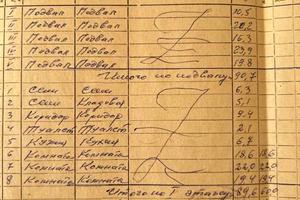 I Подвал Подвал 10,5
II Подвал Подвал 20,2
III Подвал Подвал 16,3
IV Подвал Подвал 23,9
V Подвал Подвал 19.8
Итого по подвалу: 90,7
1 Сени Сени 6,3
2 Сени Кладовая 5,1
3 Коридор Коридор 9.4
4 Туалет Туалет 2,1
5 Кухня Кухня 6,7
6 Комната Комната 18,6 18,6
7 Комната Комната 22,0 22,0
8 Комната Комната 19,4 19,4
Итого по I этажу: 89,6 60,0